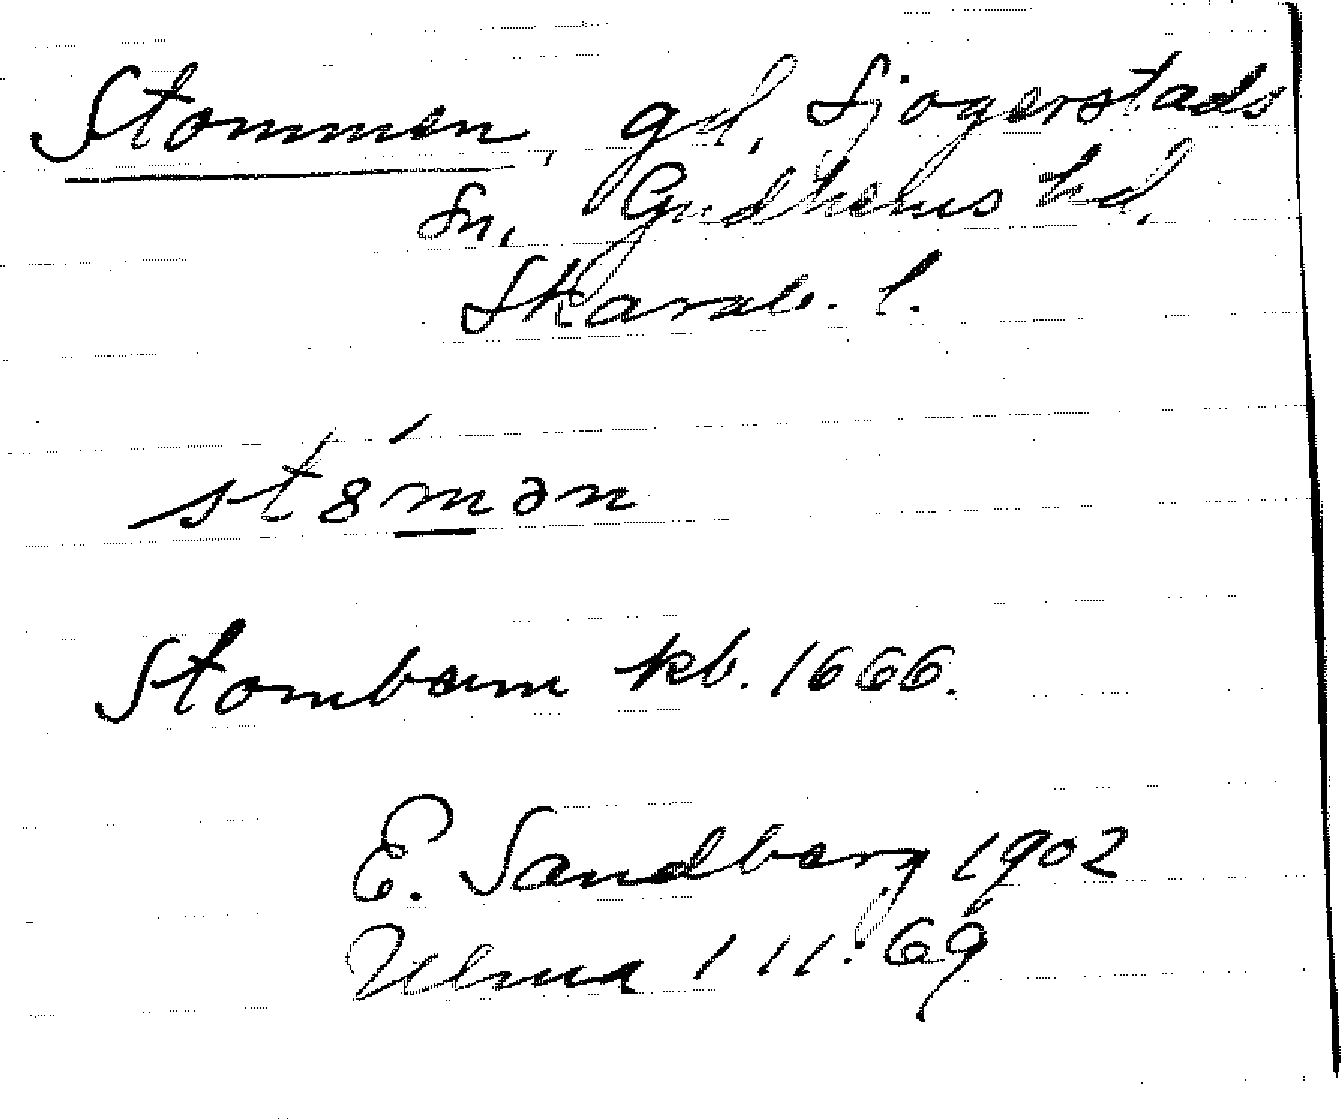 Stommen, gd, Sjogerstads
sn, Gudhems hd,
Skarab. l.
st8́mən
Stombæm kb. 1666.
E. Sandberg 1902
Ulma 111:69